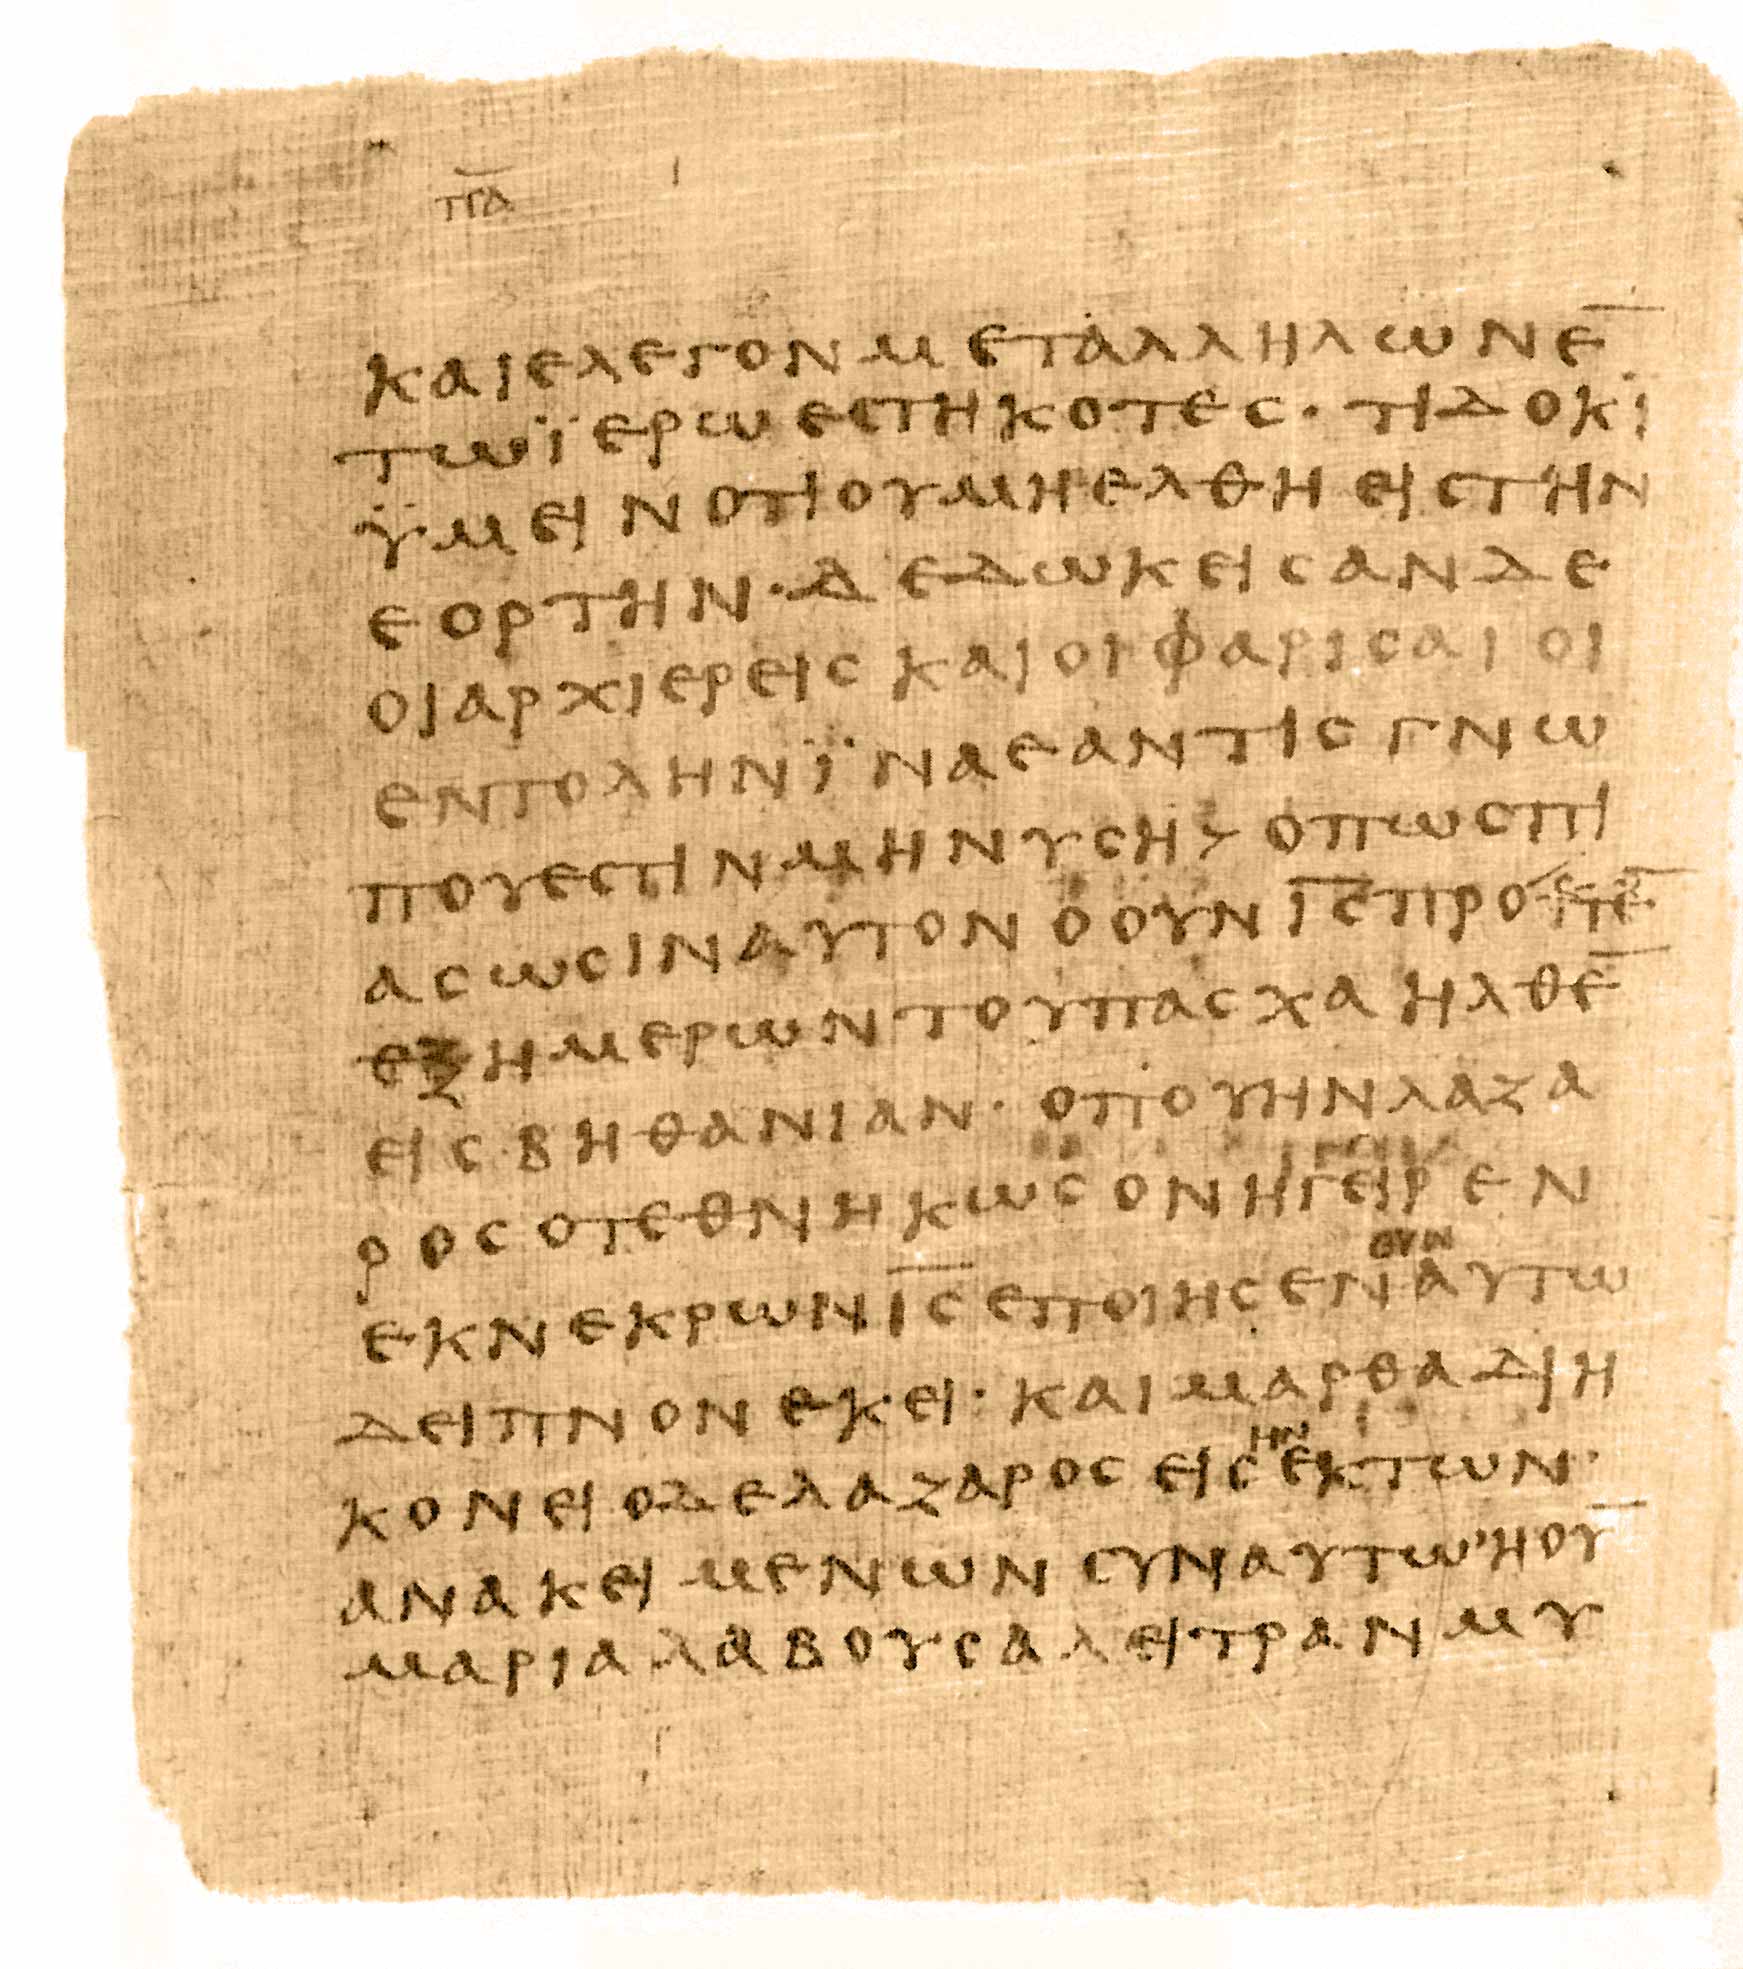 π̅α̅
ΚΑΙΕΛΕΓΟΝΜΕΤΑΛΛΗΛΩΝΕ̅
ΤΩΪΕΡΩΕΣΤΗΚΟΤΕΣ·ΤΙΔΟΚΙ
ΫΜΕΙΝΟΤΙΟΥΜΗΕΛΘΗΕΙΣΤΗΝ
ΕΟΡΤΗΝ·ΔΕΔΩΚΕΙΣΑΝΔΕ
ΟΙΑΡΧΙΕΡΕΙΣΚΑΙΟΙΦΑΡΙΣΑΙΟΙ
ΕΝΤΟΛΗΝΪΝΑΕΑΝΤΙΣΓΝΩ
ΠΟΥΕΣΤΙΝΜΗΝΥΣΗ>ΟΠΩΣΠΙ
ΑΣΩΣΙΝΑΥΤΟΝΟΟΥΝΙ̅Σ̅ΠΡΟ
ΕΞΗΜΕΡΩΝΤΟΥΠΑΣΧΑΗΛΘΕ̅
ΕΙΣΒΗΘΑΝΙΑΝ·ΟΠΟΥΗΝΛΑΖΑ
ΡΟΣΟΤΕΘΝΗΚΩΣΟΝΗΓΕΙΡΕΝ
ΟΥΝ
ΕΚΝΕΚΡΩΝΙ̅Σ̅ΕΠΟΙΗΣΕΝΑΥΤΩ
ΔΕΙΠΝΟΝΕΚΕΙ·ΚΑΙΜΑΡΘΑΔΙΗ
ΗΝ
ΚΟΝΕΙΟΔΕΛΑΖΑΡΟΣΕΙΣΕΚΤΩΝ·
ΑΝΑΚΕΙΜΕΝΩΝΣΥΝΑΥΤΩ'ΗΟΥ̅
ΜΑΡΙΑΛΑΒΟΥΣΑΛΕΙΤΡΑΝΜΥ